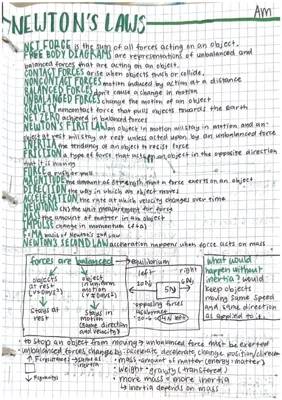 Am
NEWTON'S LAWS
NET FORCE is the sum of all forces acting on an object.
FREE BODY DIAGRAMS are representations of unbalanced and
balanced forces that are acting on an object.
CONTACT FORCES arise when objects touch or collide.
NONCONTACT FORCES motion induced by action at a distance
BALANCED FORCES don't cause a change in motion
UNBALANCED FORCES change the motion of an object
GRAVITY noncontact force that pulls objects towards the Earth
NET ZERO achieved in balanced forces
NEWTON'S FIRST LAW an object in motion will stay in motion and an
object at rest will stay at rest unless acted upon by an unbalanced force
INERTIA the tendency of an object to resist force
FRICTION a type of force that acts on an object in the opposite direction
that it is moving
FORCE a push or pull
the amount of strength that a force exerts on an object
DIRECTION the way in which an object moves
ACCELERATION the rate at which velocity changes over time
NEWTONS (N) the unit measurement for force
MASS the amount of matter in an object
IMPULSE change in momentum
F=MA
NEWTON'S SECOND LAW acceleration happens when force acts on mass
forces are balanced → equilibrium
objects
at rest
stays at
rest
object
in uniform
motion
stays in
motion
(same direction
and velocity)
left
right
opposing forces
what would
happen without
inertia? would
keep objects
moving same speed
and same direction
as applied to it.
to stop an object from moving → unbalanced force must be exerted
unbalanced forces changed by: accelerate, decelerate, change position/direction
mass - amount of matter
weight - gravity
more mass = more inertia
inertia depends on mass